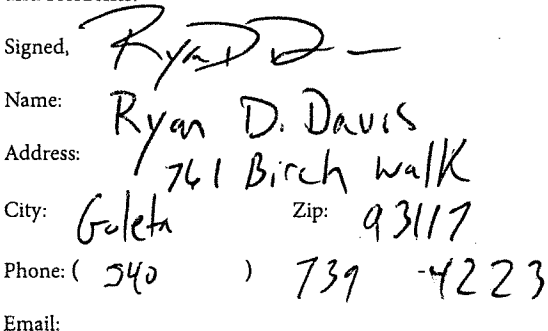 Signed, Ryan D D
Name: Ryan D. Davis
Address: 761 Birch Walk
City: Goleta Zip: 93117
Phone: ( 540 ) 739 -4223
Email: